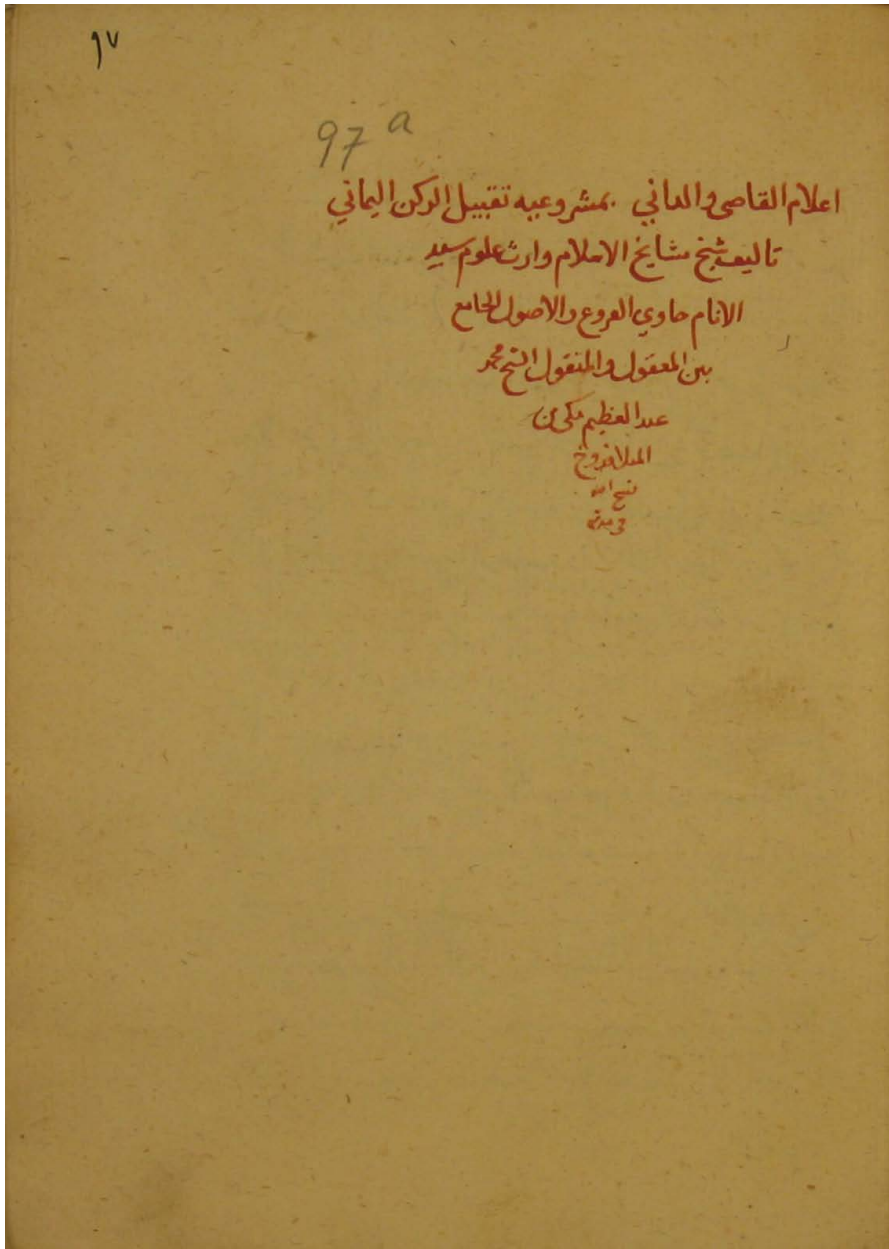 ٩٧
97 a
اعلام القاصى والدانى بمشروعيه تقبيل الركن اليمانى
تاليف شيخ مشايخ الاسلام وارث علوم سيد
الانام حاوي الفروع والاصول الجامع
بين المعقول والمنقول الشيخ محمد
عبد العظيم مكى بن
المنلا فروخ
فسح الله
فى مدته